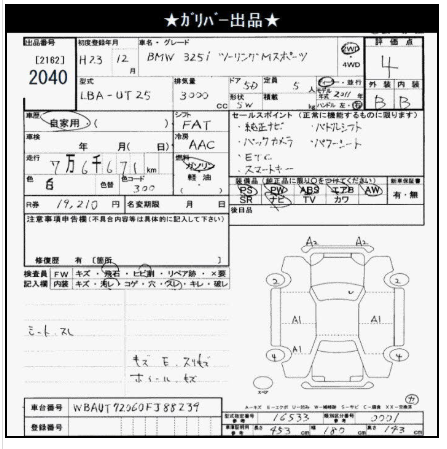 ★ガリバー出品★
出品番号
[2162]
2040
初度登録年月
H23年 12月
車名・グレード
BMW 325i ツーリングMスポーツ
2WD
・
4WD
評価点
4
型式
LBA-UT25
排気量
3000 CC
ドア 5D
形状 SW
定員 5 人
積載 kg
ディーラー・並行
モデル年式 2011年
ハンドル 左・右
外装 内装
B B
車歴
自家用 ( )
シフト
FAT
車検
年 月( 日)
冷房
AAC
走行
7万6千671 km
燃料
ガソリン
軽油
( )
色
白
色替
色コード
300
R券 19,210 円
名変期限 月 日
セールスポイント (正常に機能するものに限ります)
・純正ナビ ・パドルシフト
・バックカメラ ・パワーシート
・ETC
・スマートキー
装備品 (純正品に限り○をつけてください)
PS PW ABS エアB AW
SR ナビ TV カワ
新車保証書
有・無
後日品
注意事項申告欄(不具合内容等は具体的に記入して下さい)
修復歴 有 [箇所 ]
検査員記入欄
FW キズ・飛石・ヒビ割・リペア跡・×要
内装 キズ・汚レ・コゲ・穴・スレ・キレ・破レ
シートスレ
キズ E スリキズ
ホイールキズ
A2 A2
2 2
A1 A1 A1
4 4
スペア
車台番号 WBAUT72060FJ88239
登録番号
型式指定番号 16533
類別区分番号 0001
長さ 453 cm 幅 180 cm 高さ 143 cm